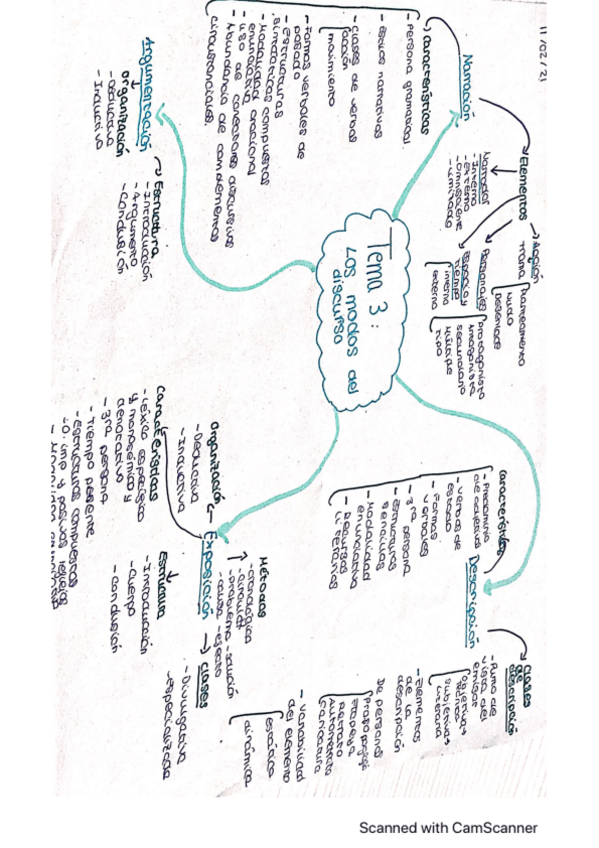 11/02/21
Tema 3:
Los modos del
discurso
Narración
Características
- Persona gramatical
- Estilos narrativos
- Clases de verbos
acción
movimiento
- Formas verbales de
pasado
- Estructuras
sintácticas compuestas
- Modalidad oracional
enunciativa
- Uso de conectores discursivos
- Abundancia de complementos
circunstanciales.
Elementos
Narrador
- Interno
- Externo
- Omnisciente
- Limitado
Acción
Trama
Planteamiento
Nudo
Desenlace
Personajes
protagonista
antagonista
secundario
Espacio y
tiempo
interna
externa
Tipo
Descripción
Características
- Predominio
de adjetivos
- Verbos de
estado
- Formas
verbales
- 3ra persona
- Estructuras
sencillas
- Modalidad
enunciativa
- Recursos
literarios
Clases
de
descripción
- Punto de
vista del
emisor
objetivos
técnica
subjetivos
literaria
- Elementos
de la
descripción
De personas
Prosopografía
Etopeya
Retrato
Autorretrato
Caricatura
- Variabilidad
del elemento
estática
dinámica
Exposición
Métodos
- cronológica
- circular
- problema - solución
- causa - efecto
Clases
- Divulgativa
- Especializada
Organización
- Deductiva
- Inductiva
Estructura
- Introducción
- Cuerpo
- Conclusión
Características
- Léxico específico
y monosémico y
denotativo
- 3ra persona
- Tiempo presente
- Estructuras compuestas
- O. imp y pasivas reflejas
Argumentación
Organización
- Deductiva
- Inductiva
Estructura
- Introducción
- Argumento
- Conclusión
Scanned with CamScanner